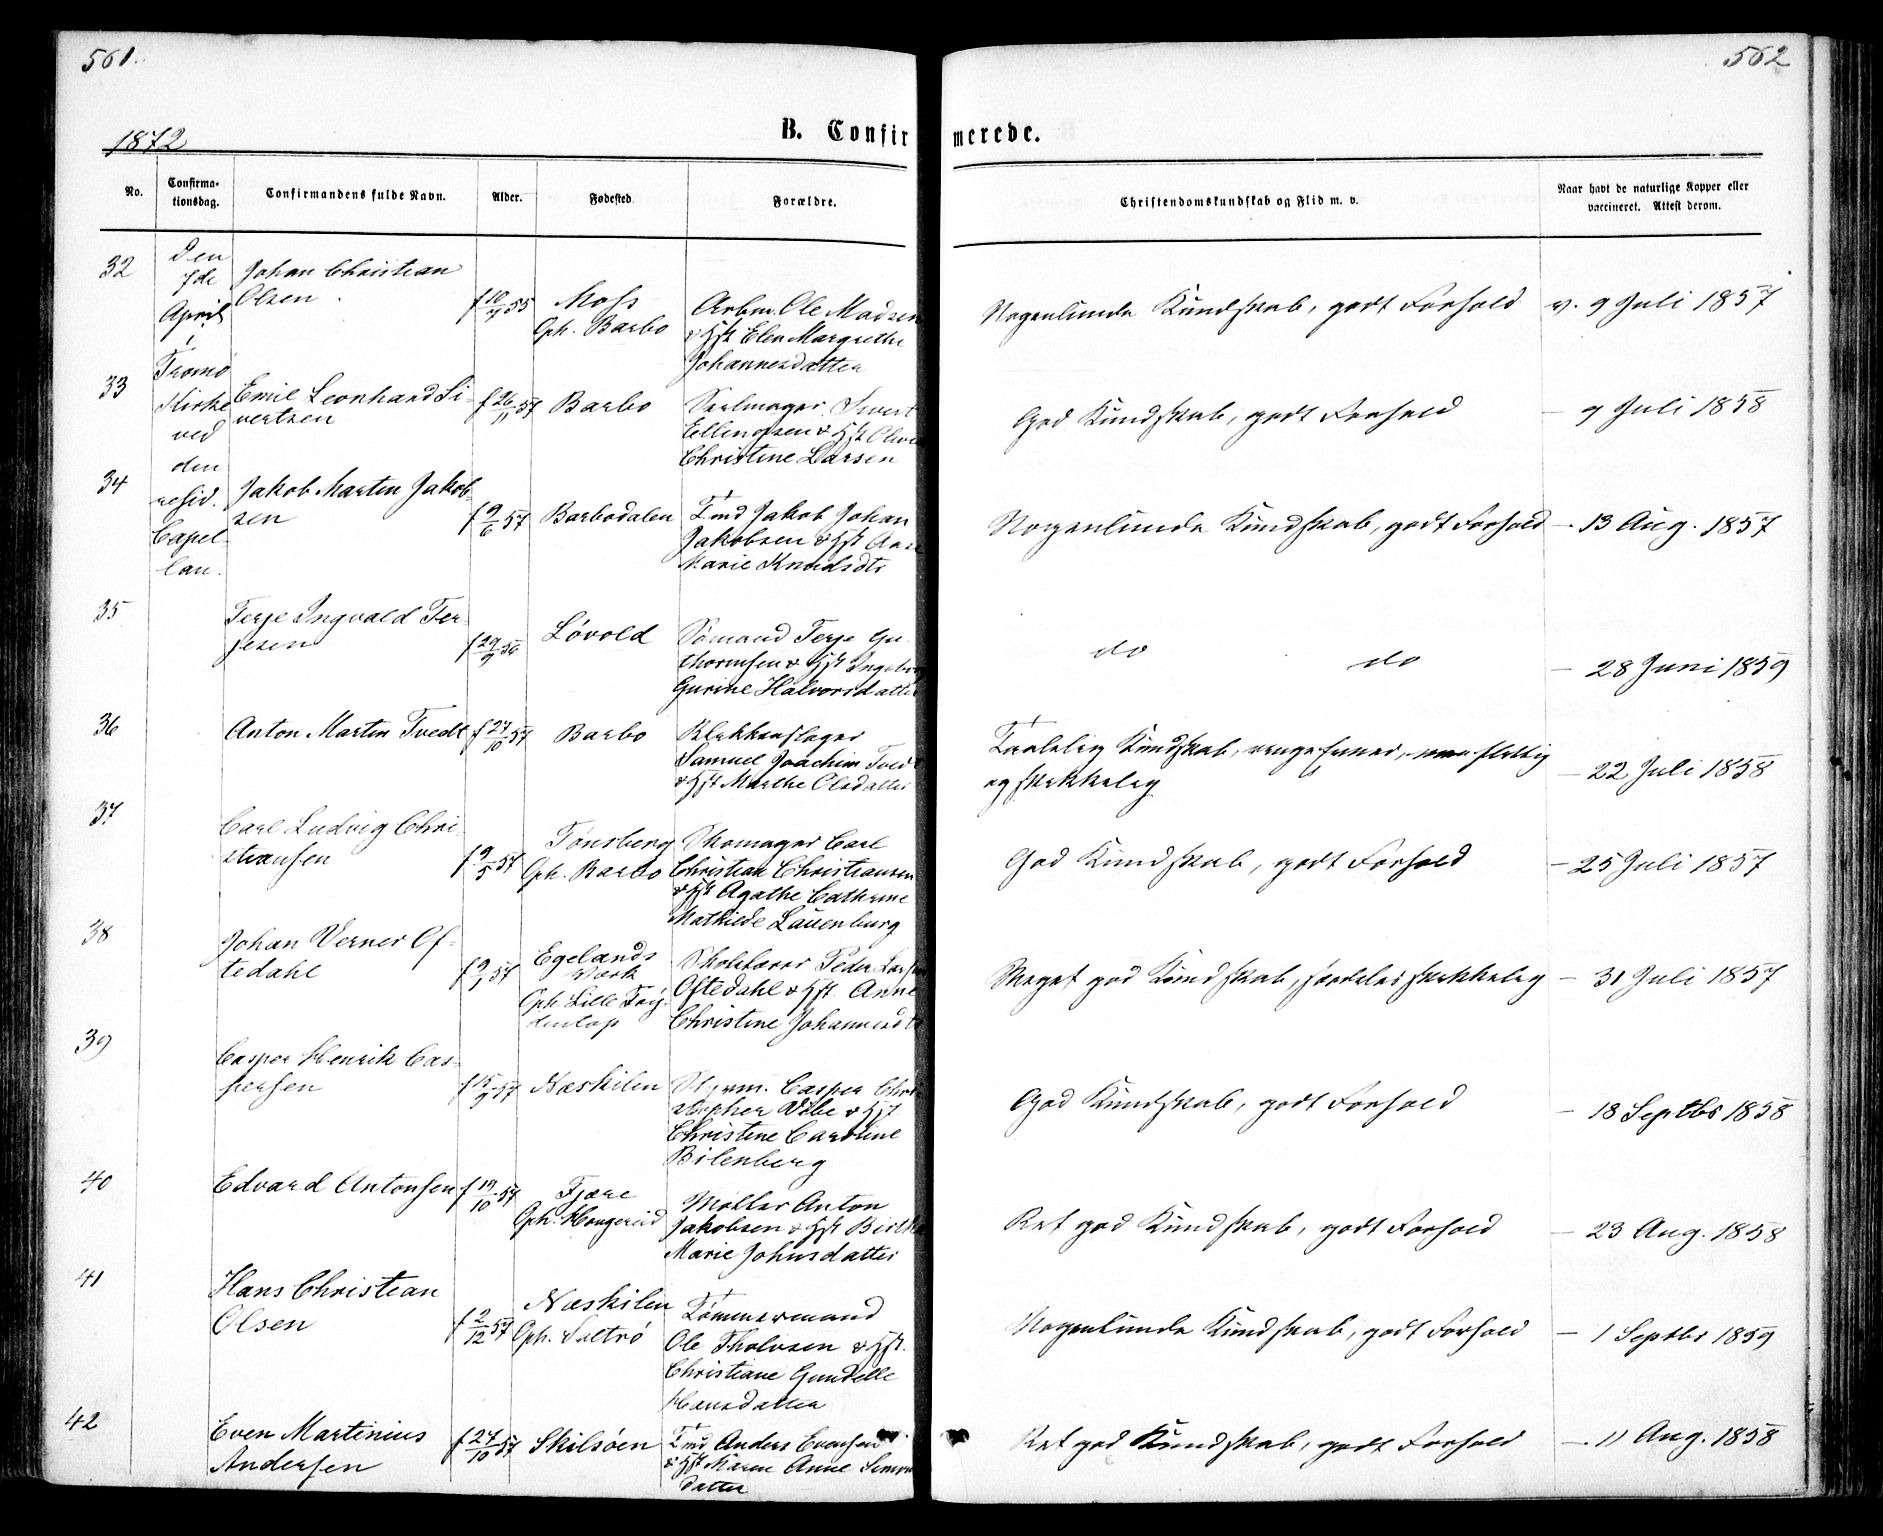 561.
562
1872
B. Confirmerede.
No.
Confirma-
tionsdag.
Confirmandens fulde Navn.
Alder.
Fødested
Forældre.
Christendomskundskab og Flid m. v.
Naar havt de naturlige Kopper eller
vaccineret. Attest derom.
Den
7de
April
i
Tromø
Kirke
ved
den
resid.
Capel-
lan.
32
Johan Christian
Olsen.
f 10/4 55
Moss
Oph. Barbo
Arbm. Ole Madsen
& Hst Elen Margrethe
Johannesdatter
Nogenlunde Kundskab, godt Forhold
v. 9 Juli 1857
33
Emil Leonhard Si-
vertsen
f 26/11 57
Barbo
Seilmager Sivert
Ellingsen & Hst Olivia
Christine Larsen
God Kundskab, godt Forhold
– 9 Juli 1858
34
Jakob Martin Jakob-
sen
f 9/6 57
Barbodalen
Tmd Jakob Johan
Jakobsen & Hst Aase
Marie Knudsdtr
Nogenlunde Kundskab, godt Forhold
– 13 Aug. 1857
35
Terje Ingvald Ter-
jesen
f 29/9 56
Løvold
Sømand Terje Gu-
thormsen & Hst Ingeborg
Gurine Halvorsdatter
do do
– 28 Juni 1859
36
Anton Martin Tvedt
f 27/10 57
Barbo
Blokkenslager
Samuel Joachim Tvedt
& Hst Marthe Olsdatter
Taalelig Kundskab, ringe Evner, flittig
og skikkelig
– 22 Juli 1858
37
Carl Ludvig Chri-
stiansen
f 9/5 57
Tønsberg
Oph. Barbo
Skomager Carl
Christian Christiansen
& Hst Agathe Cathrine
Mathilde Lauenburg
God Kundskab, godt Forhold
– 25 Juli 1857
38
Johan Verner Of-
tedahl
f 9/1 57
Egelands
Værk
Oph. Lille Tøi-
Skolelærer Peder Larsen
Oftedahl & Hst. Anne
Christine Johannesdtr
Meget god Kundskab, særdeles skikkelig
– 31 Juli 1857
39
Casper Henrik Cas-
persen
f 15/9 57
Næskilen
Styrm. Casper Chri-
stopher Vibe & Hst
Christine Caroline
Bilenberg
God Kundskab, godt Forhold
– 18 Septbr 1858
40
Edvard Antonsen
f 19/10 57
Fjære
Oph. Longereid
Møller Anton
Jakobsen & Hst Birthe
Marie Johnsdatter
Ret god Kundskab, godt Forhold
– 23 Aug. 1858
41
Hans Christian
Olsen
f 2/12 57
Næskilen
Oph. Saltrø
Tømmermand
Ole Tholvsen & Hst.
Christiane Gundelle
Hansdatter
Nogenlunde Kundskab, godt Forhold
– 1 Septbr 1859
42
Even Martinius
Andersen
f 27/10 57
Skilsøen
Tmd Anders Evensen
& Hst Maren Anne Simons-
datter
Ret god Kundskab, godt Forhold
– 11 Aug. 1858